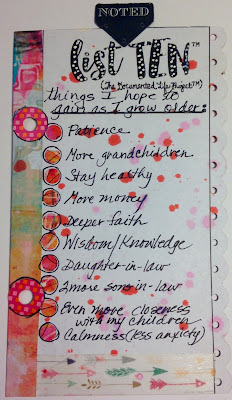 NOTED
List TEN™
(The Documented Life Project™)
things I hope to
gain as I grow order:
Patience
More grandchildren
Stay healthy
More money
Deeper faith
Wisdom/Knowledge
Daughter-in-law
2 more sons-in-law
Even more closeness
with my children
Calmness (less anxiety)